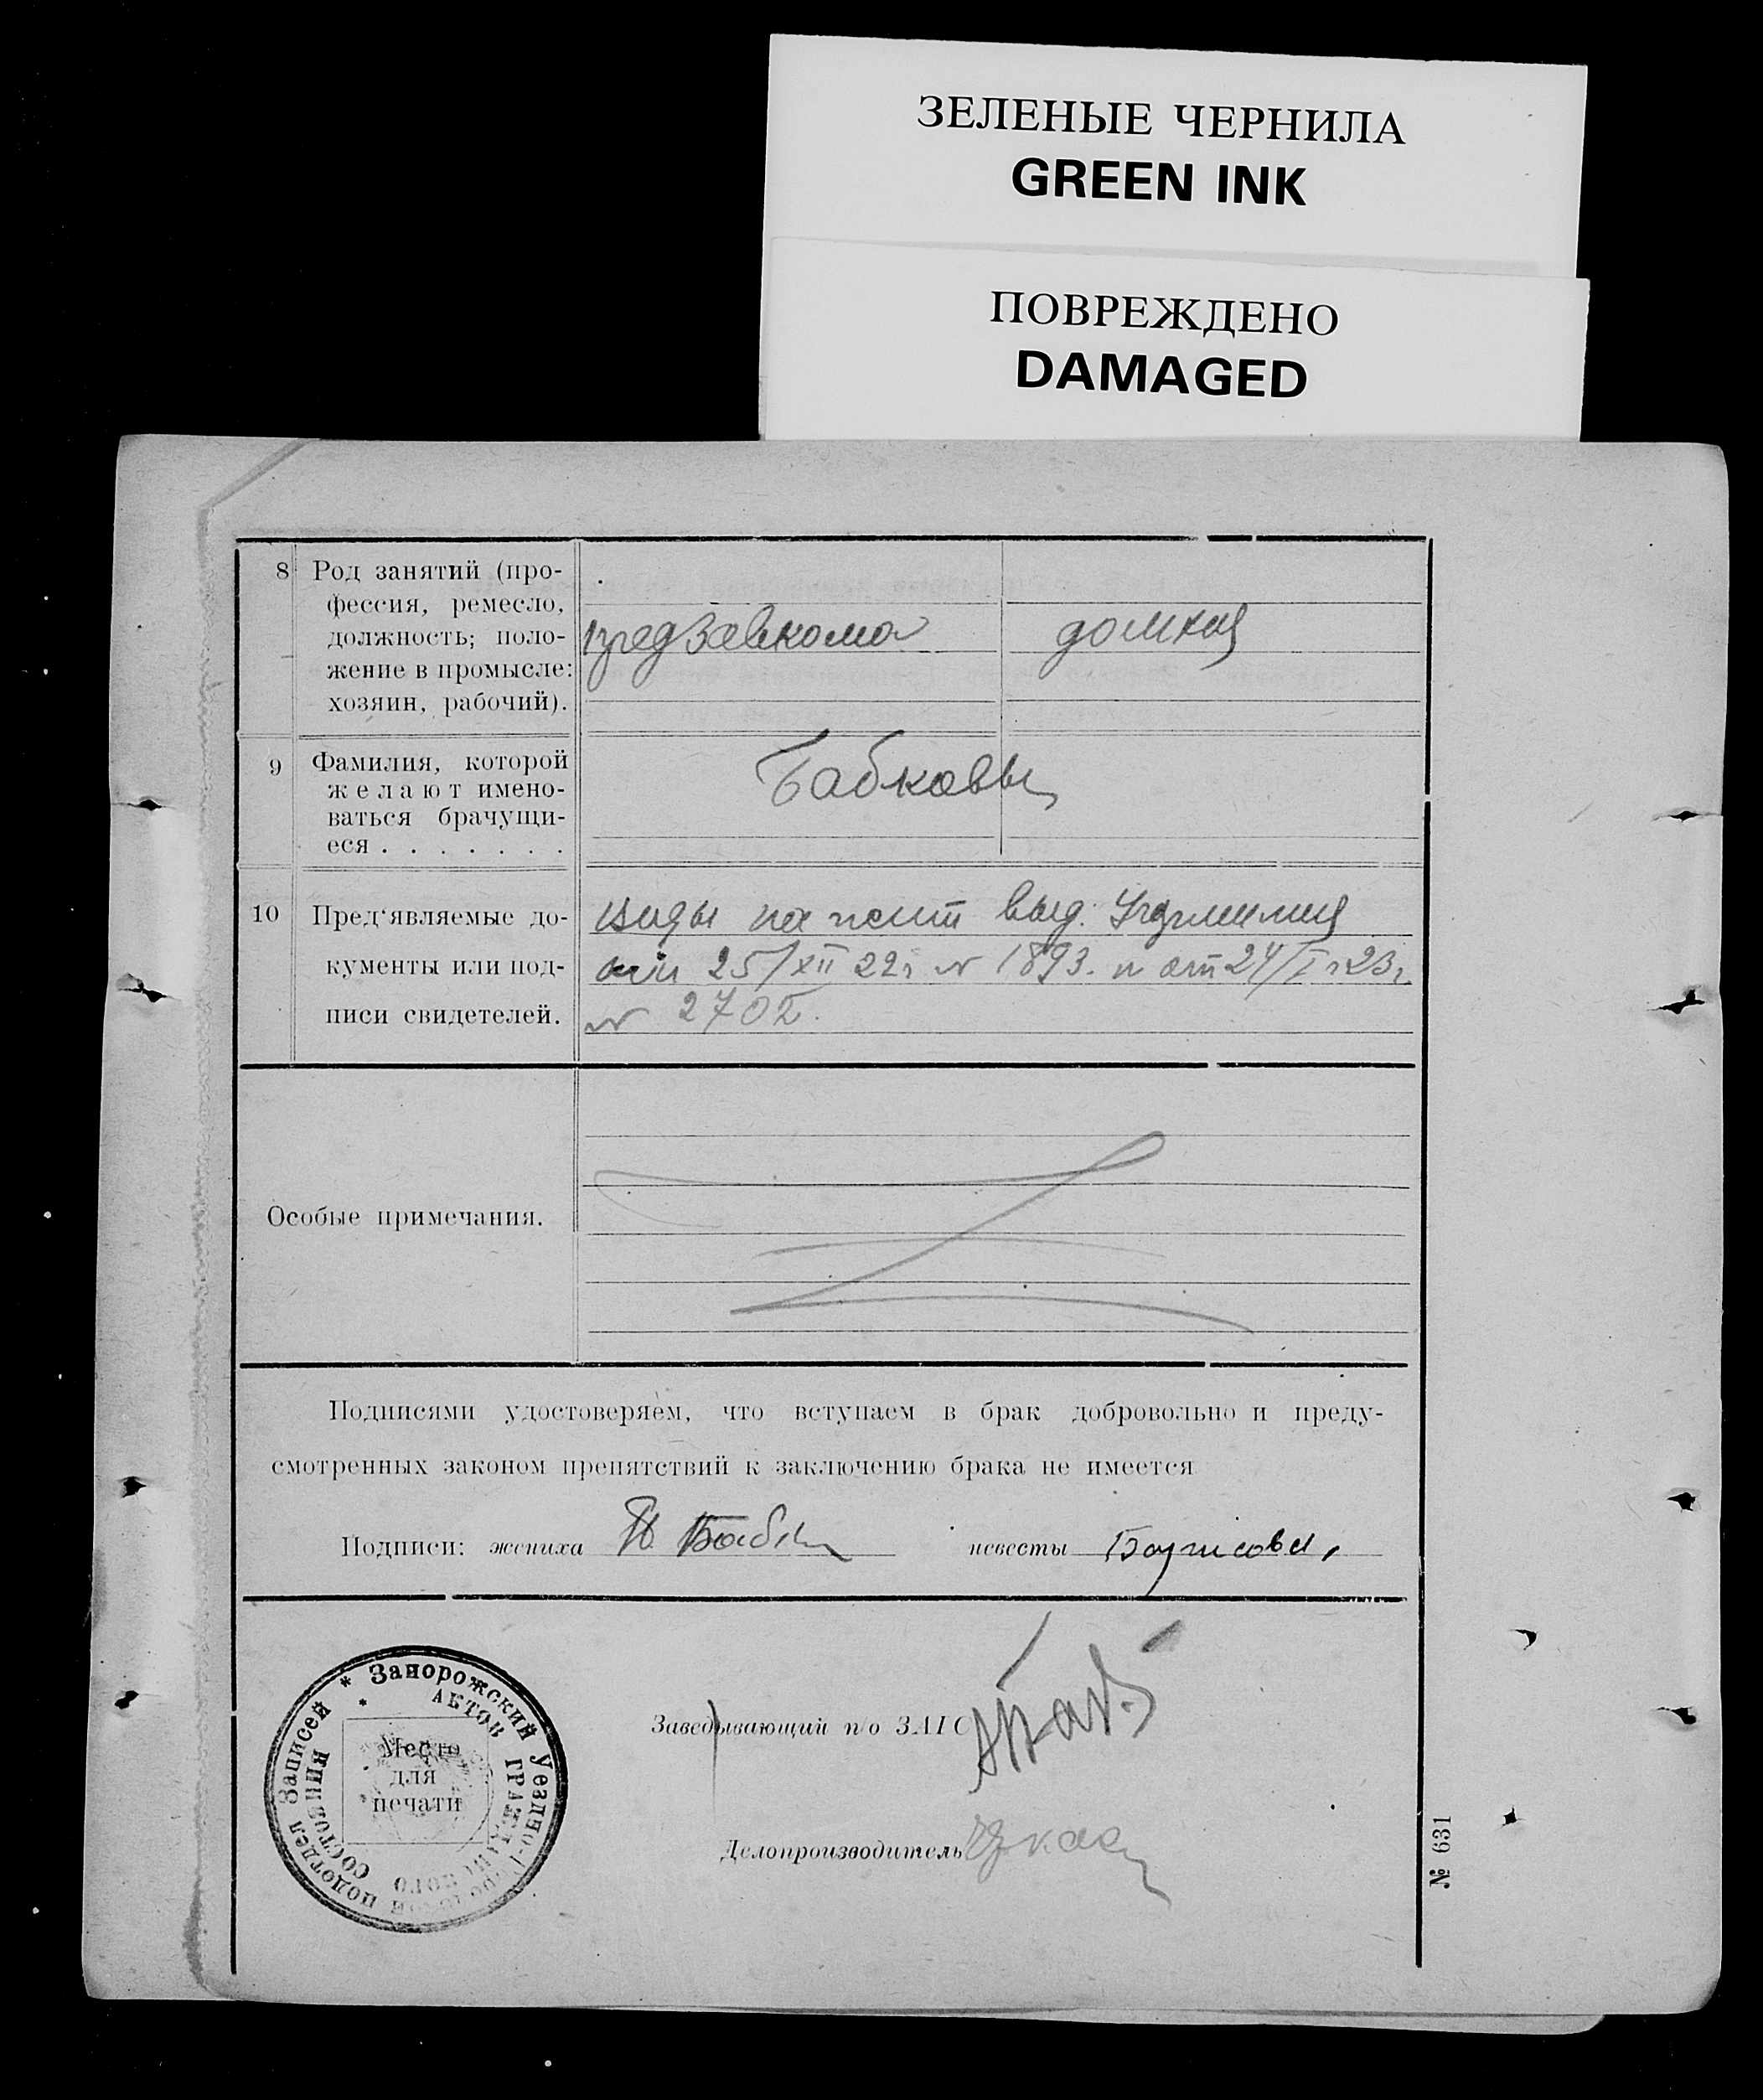 ЗЕЛЕНЫЕ ЧЕРНИЛА
GREEN INK
ПОВРЕЖДЕНО
DAMAGED
8 Род занятий (про-
фессия, ремесло,
должность; поло-
жение в промысле:
хозяин, рабочий).
предзавкома домхоз
9 Фамилия, которой
желают имено-
ваться брачущи-
еся . . . . . . .
Бабковы
10 Пред'являемые до-
кументы или под-
писи свидетелей.
виды на жит выд.
25/XII 22г № 1893. и от 24/I 23г.
№ 2702.
Особые примечания.
Подписями удостоверяем, что вступаем в брак добровольно и преду-
смотренных законом препятствий к заключению брака не имеется
Подписи: жениха невесты Борисова
Заведывающий п/о ЗАГС
Делопроизводитель
Запорожский Уездно-Городской подотдел Записей
АКТОВ ГРАЖДАНСКОГО СОСТОЯНИЯ
Место
для
печати
№ 631